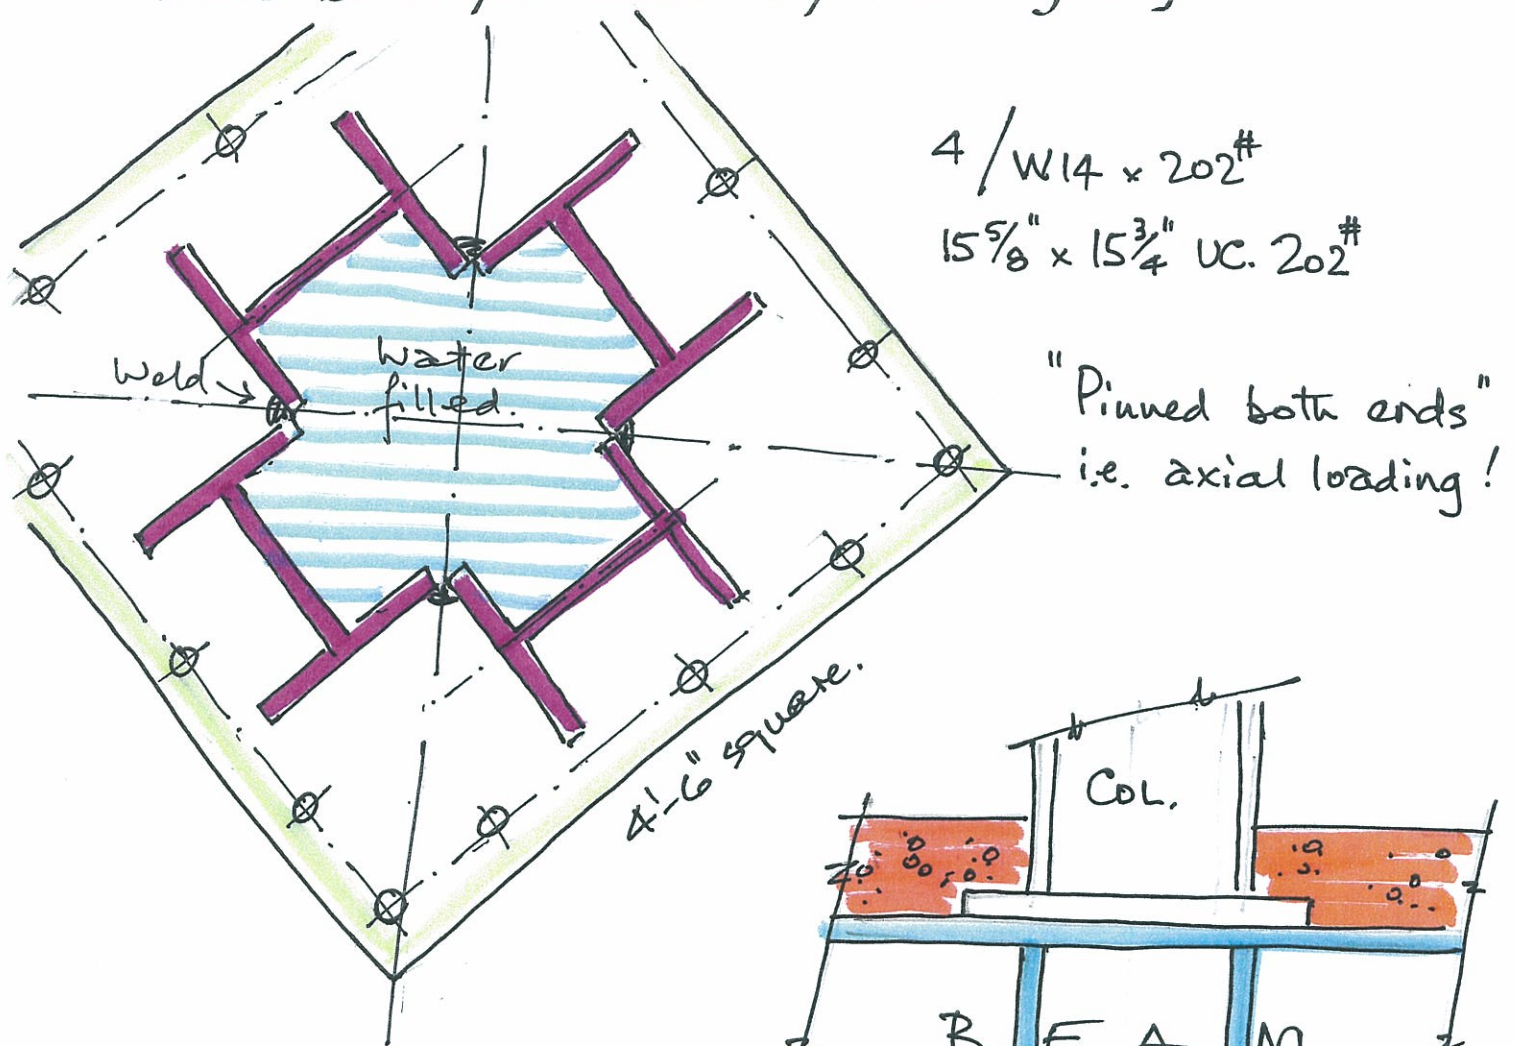 4/W14 × 202#
15 5/8" × 15 3/4" UC. 202#
"Pinned both ends"
i.e. axial loading!
Weld
Water
filled.
4'-6" square.
COL.
BEAM